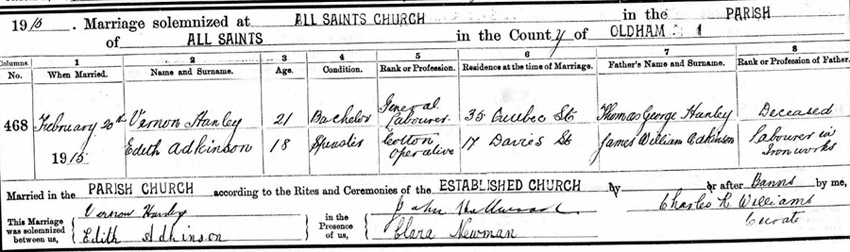 1915. Marriage solemnized at ALL SAINTS CHURCH in the PARISH
of ALL SAINTS in the County of OLDHAM
Columns. 1 2 3 4 5 6 7 8
No. When Married. Name and Surname. Age. Condition. Rank or Profession. Residence at the time of Marriage. Father's Name and Surname. Rank or Profession of Father.
468 February 20th 1915 Vernon Hanley 21 Bachelor General Labourer. 35 Quebec St. Thomas George Hanley Deceased
Edith Adkinson 18 Spinster Cotton Operative 17 Davies St James William Adkinson Labourer in Ironworks
Married in the PARISH CHURCH according to the Rites and Ceremonies of the ESTABLISHED CHURCH by or after Banns by me,
This Marriage was solemnized between us, Vernon Hanley Edith Adkinson in the Presence of us, John Clara Newman Charles R. Williams Curate